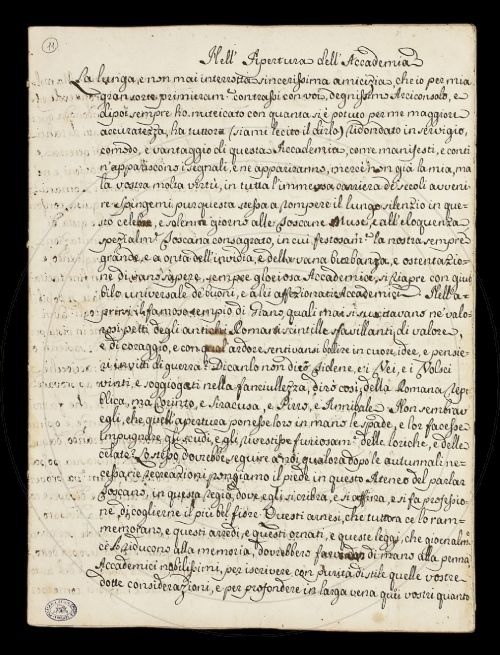 11
Nell' Apertura dell'Accademia
La lunga, e non mai interrotta sincerissima amicizia, che io per mia
gran sorte primieram.te contrassi con voi, degnissimo Arciconsolo, e
di poi sempre ho nutricato con quanta si è potuto per me maggiore
accuratezza, ha tuttora (siami lecito il dirlo) ridondato in servigio,
comodo, e vantaggio di questa Accademia, come manifesti, e conti
n'appariscono i segnali, e ne appariranno, mercè non già la mia, ma
la vostra molta virtù, in tutta l'immensa carriera de' secoli avveni-
re. Spingemi pur questa stessa a rompere il lungo silenzio in que-
sto celebre, e solenne giorno alle Toscane Muse, e all'eloquenza
spezialm.te Toscana consagrato, in cui festosam.te la nostra sempre
grande, e a onta dell'invidia, e della vana burbanza, e ostentazio-
ne di van sapere, sempre gloriosa Accademia, si riapre con giub-
bilo universale de' buoni, e a lei affezionati Accademici. Nell'a-
prirsi il famoso tempio di Giano, quali mai si suscitavano ne' valo-
rosi petti degli antichi Romani scintille sfavillanti di valore,
e di coraggio, e con qual ardore sentivansi bollire in cuore idee, e pensie-
ri invitti di guerra? Dicanlo non dico Fidene, e i Vei, e i Volsci
vinti, e soggiogati nella fanciullezza, dirò così, della Romana Rep-
blica, ma Corinto, e Siracusa, e Pirro, e Annibale. Non sembrava
egli, che quell'apertura ponesse loro in mano le spade, e lor facesse
impugnare gli scudi, e gli rivestisse furiosam.te delle loriche, e delle
celate? Lo stesso dovrebbe seguire a noi, qualora dopo le autunnali ne-
cessarie recreazioni ponghiamo il piede in questo Ateneo del parlar
Toscano, in questa regia, dove egli si cribra, e si affina, e si fa professio-
ne di coglierne il più bel fiore. Questi arnesi, che tuttora ce lo ram-
memorano, e questi arredi, e questi ornati, e queste leggi, che giornalm.te
ce lo riducono alla memoria, dovrebbero far di mano alla penna
Accademici nobilissimi, per iscrivere con purità di stile quelle vostre
dotte considerazioni, e per profondere in larga vena quei vostri quanto